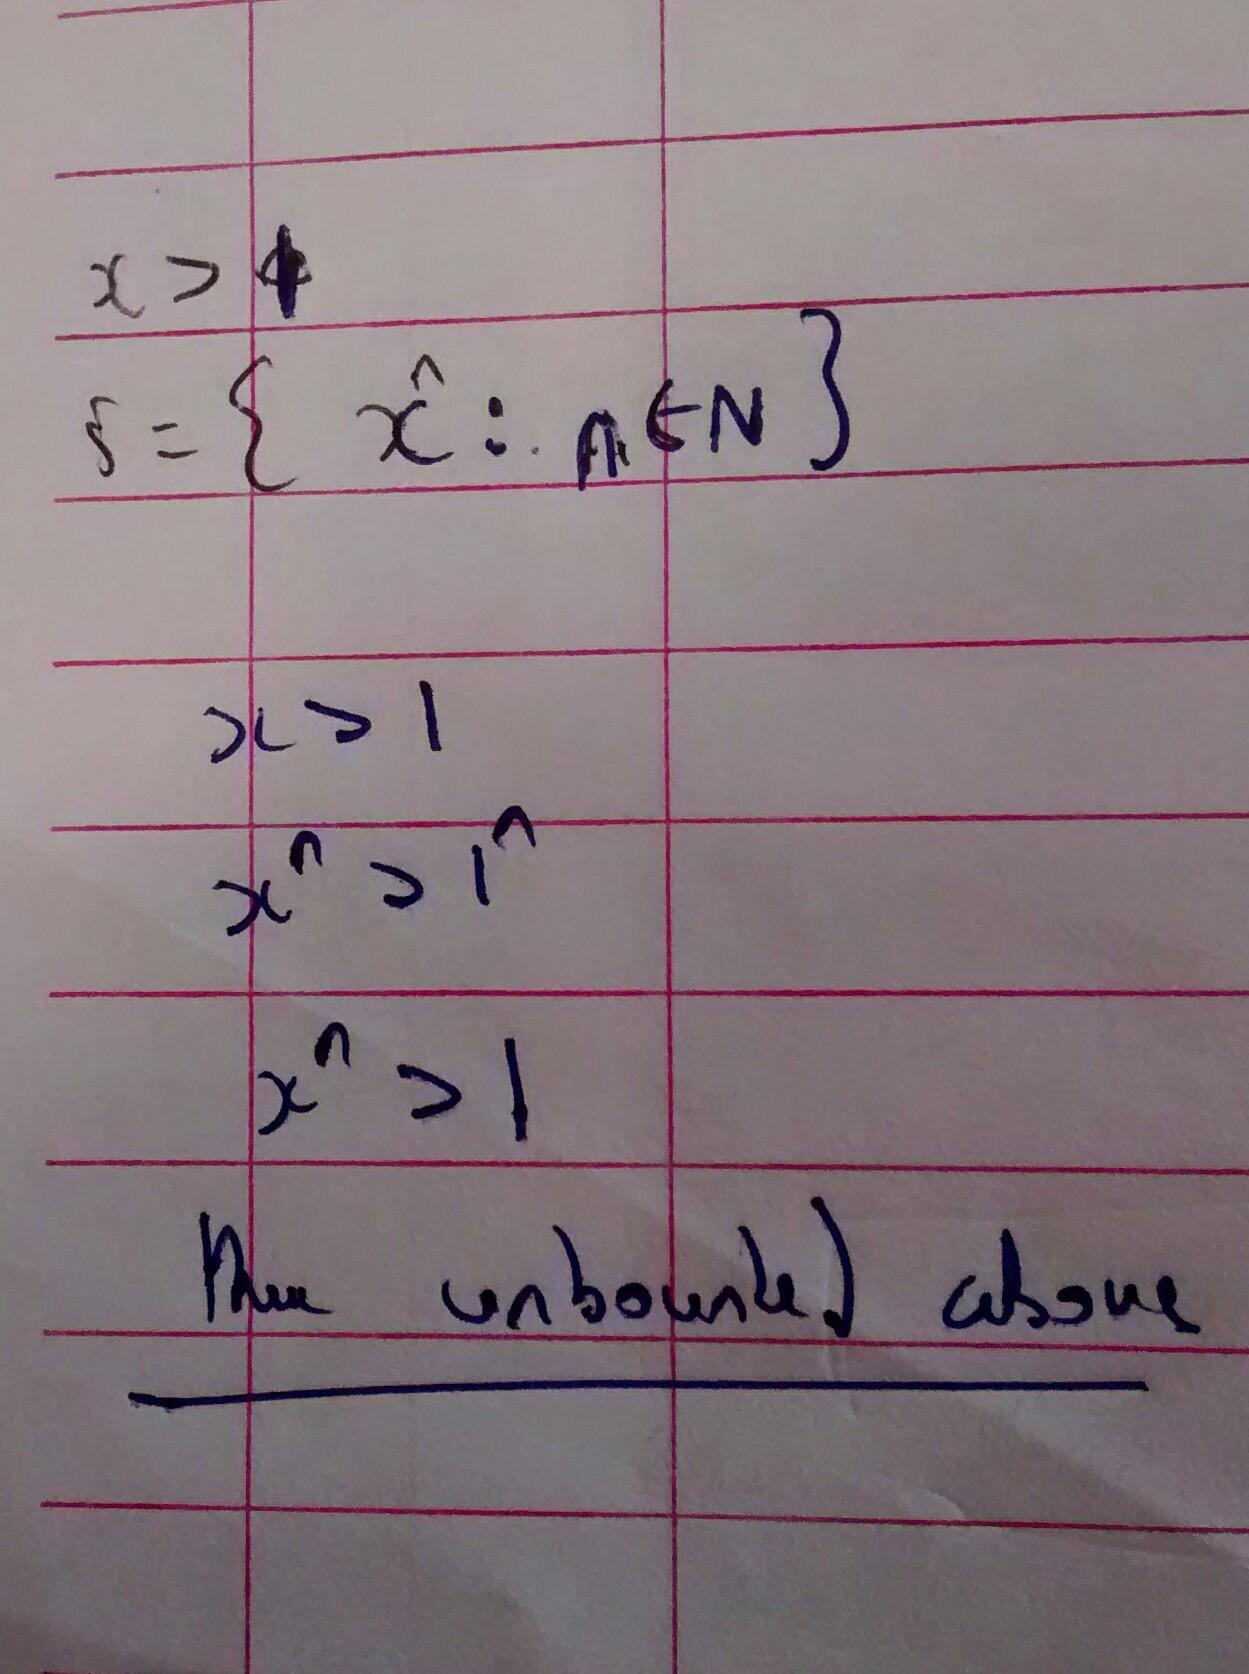 x > 1
S = { xⁿ : n ∈ N }
x > 1
xⁿ > 1ⁿ
xⁿ > 1
unbounded above